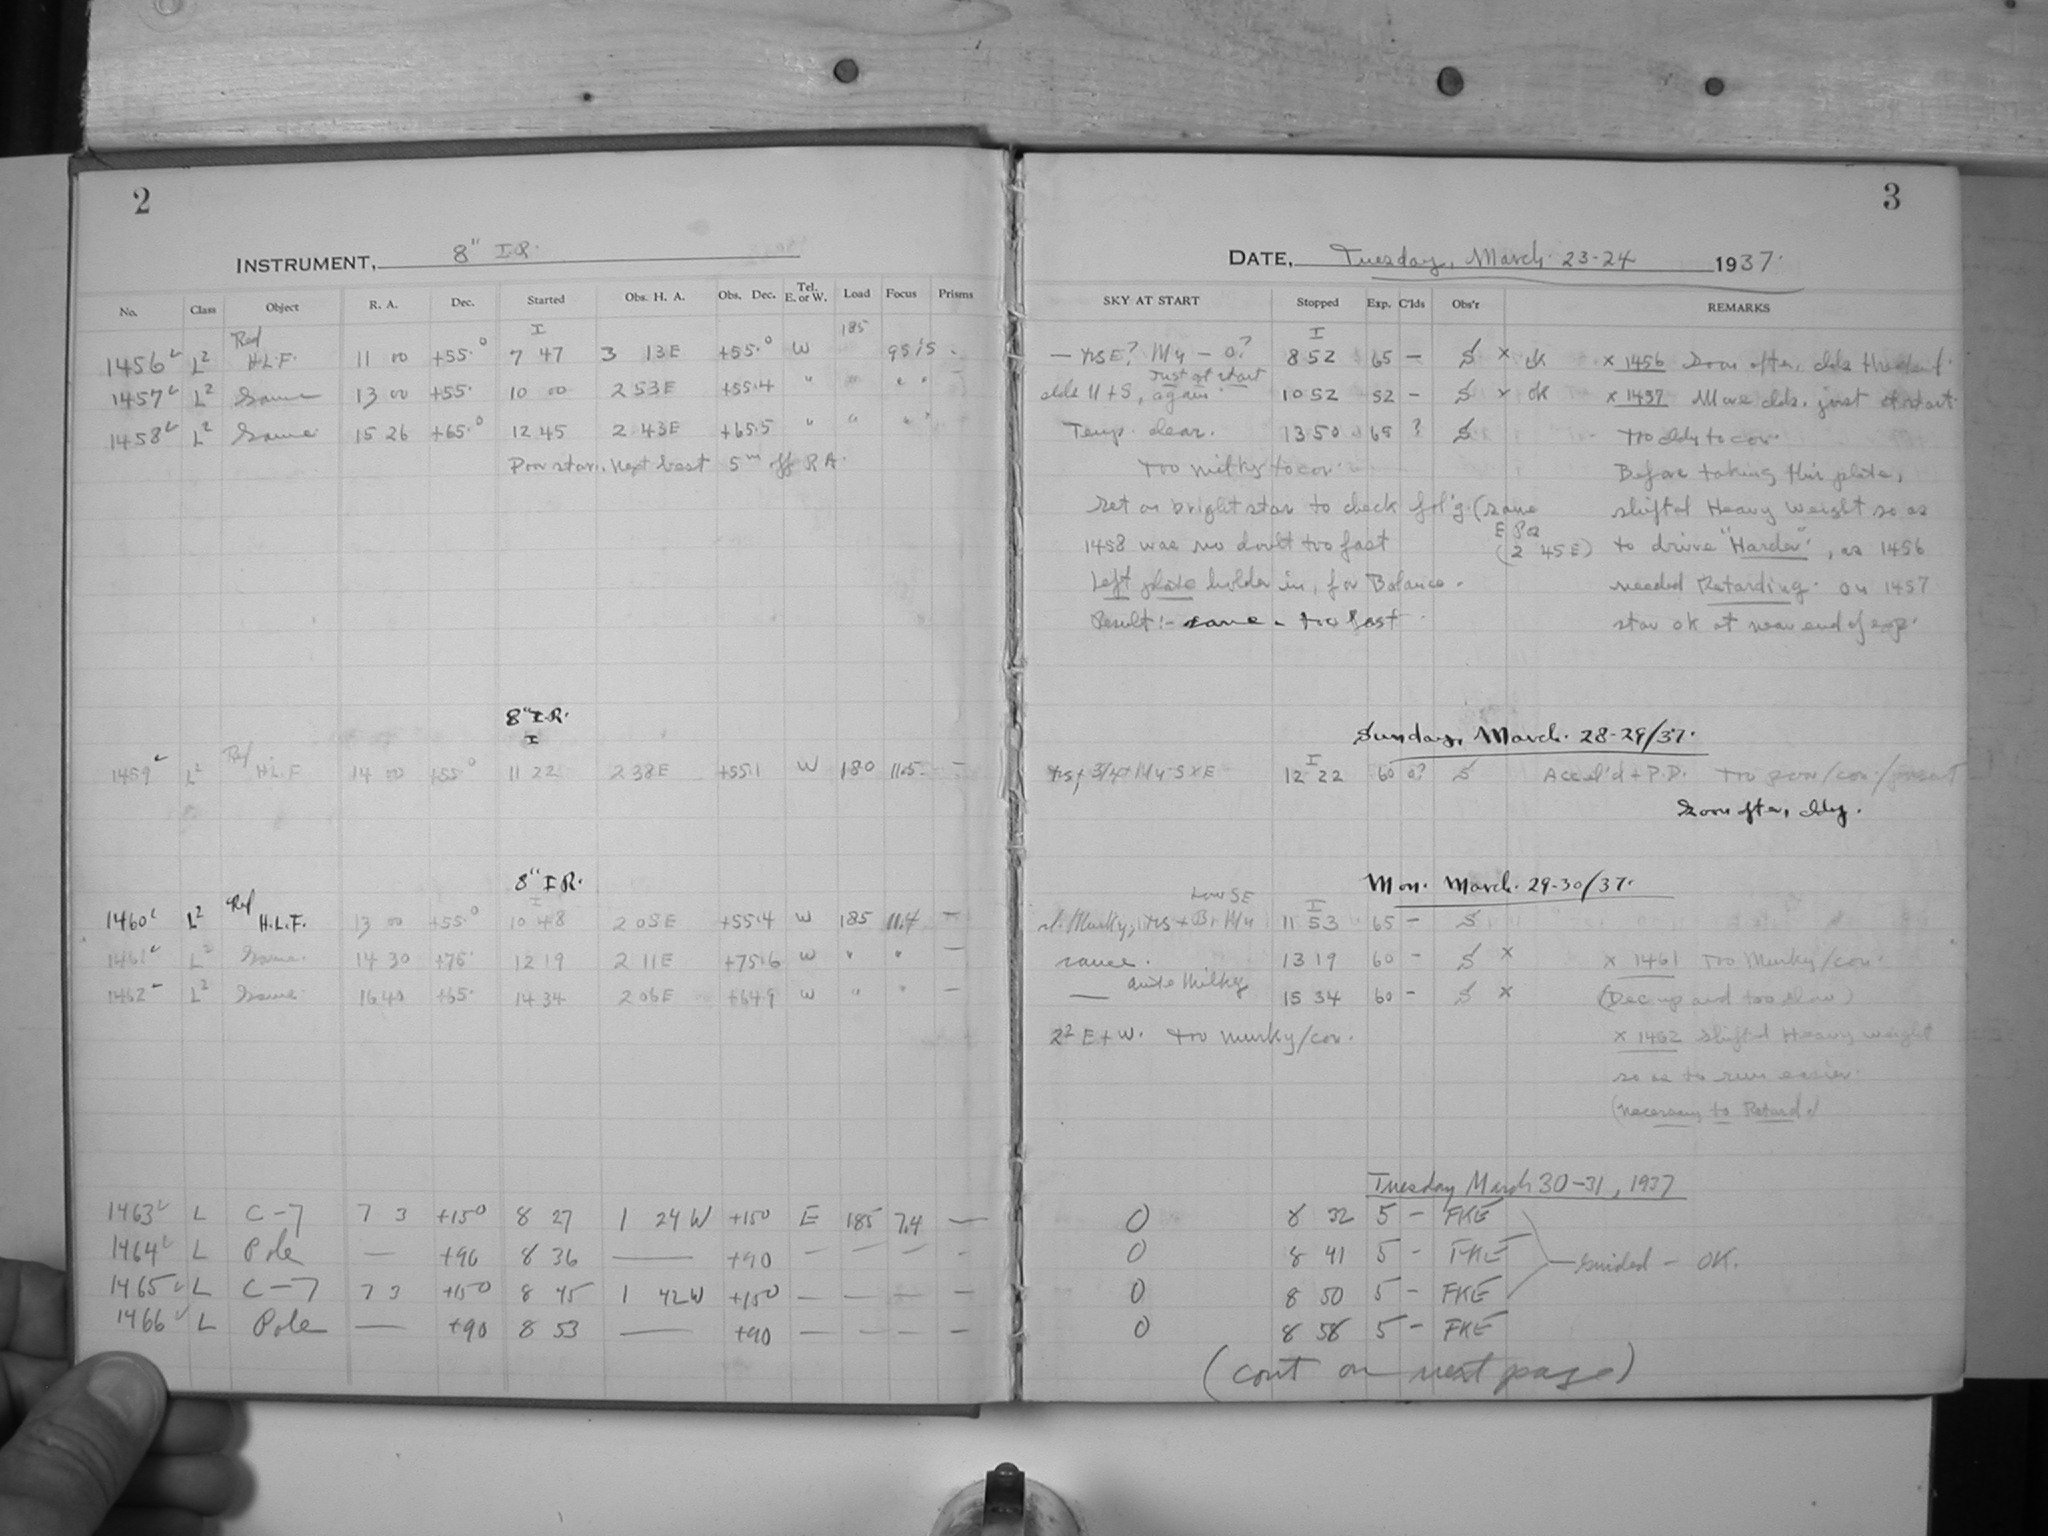 2
INSTRUMENT, 8" I.R.
No. Class Object R. A. Dec. Started Obs. H. A. Obs. Dec. Tel. E. or W. Load Focus Prisms
I 185
1456 L² Red H.L.F. 11 00 +55.0 7 47 3 13E +55.0 W
1457 L² Same 13 00 +55. 10 00 2 53E +55.4 " " " "
1458 L² Same 15 26 +65.0 12 45 2 43E +65.5 " " " "
Poor star. Next best 5m off RA.
8" I.R.
I
1459 L² Red H.L.F 14 00 +55.0 11 22 2 38E +55.1 W 180 11.5 —
8" I.R.
I
1460 L² Red H.L.F. 13 00 +55.0 10 48 2 05E +55.4 W 185 11.4 —
1461 L² Same 14 30 +75. 12 19 2 11E +75.6 W " " —
1462 L² Same 16 40 +65. 14 34 2 06E +64.9 W " " —
1463 L C-7 7 3 +15 0 8 27 1 24W +15 0 E 185 7.4 —
1464 L Pole — +90 8 36 — +90 — — — -
1465 L C-7 7 3 +15 0 8 45 1 42W +15 0 — — — —
1466 L Pole — +90 8 53 — +90 — — — —
3
DATE, Tuesday, March 23-24 1937.
SKY AT START Stopped Exp. C'lds Obs'r REMARKS
I
8 52 65 — S × ok × 1456 Soon after, clds
Just at start
clds U + S, again 10 52 52 — S × ok × 1457 More clds. just at start
Temp. clear. 13 50 65 ? S Too cldy to con.
Too milky to con. Before taking this plate,
Set on bright star to check fol'g. (same shifted Heavy weight so as
1458 was no doubt too fast (2 45E) to drive "Harder", as 1456
Left plate holder in, for Balance. needed Retarding. On 1457
Result:- same - too fast star ok at near end of exp.
Sunday, March. 28-29/37.
I
12 22 60 0? S Accel'd + P.D. Too poor/con./
Soon after, cldy.
Mon. March. 29-30/37.
Low SE I
sl. Murky, 11 53 65 — S
same. 13 19 60 - S × × 1461 Too Murky/con.
— quite Milky 15 34 60 - S × (Dec up and too slow)
2² E + W. Too murky/con. × 1462 Shifted Heavy weight
so as to run easier.
(necessary to Retard)
Tuesday March 30-31, 1937
0 8 32 5 - FKE
0 8 41 5 - FKE Guided - OK.
0 8 50 5 - FKE
0 8 58 5 - FKE
(cont on next page)